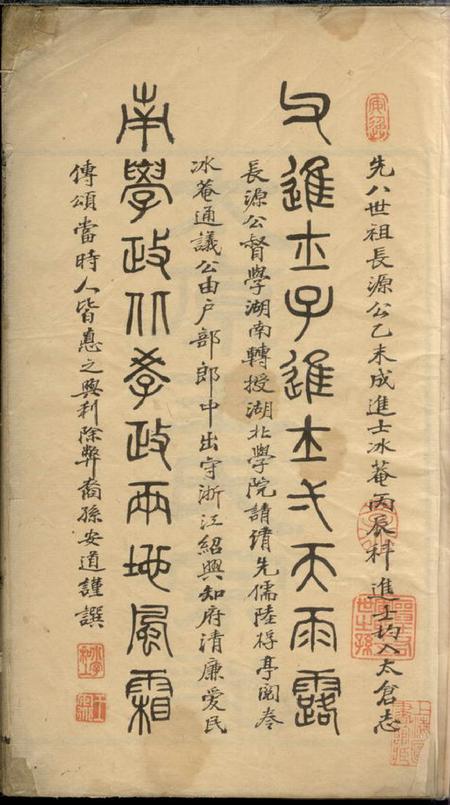 先八世祖長源公乙未成進士冰菴丙辰科進士均入太倉志
父進士子進士弌天雨露
長源公督學湖南轉授湖北學院請續先儒陸桴亭
冰菴通議公由户部郎中出守浙江紹興知府清廉愛民
南學政北學政兩地風霜
傳頌當時人皆惠之興利除弊裔孫安道謹譔
上海圖書館藏